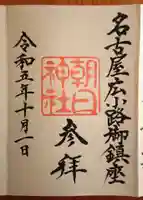 名古屋広小路御鎮座
朝日神社
参拝
令和五年十月一日